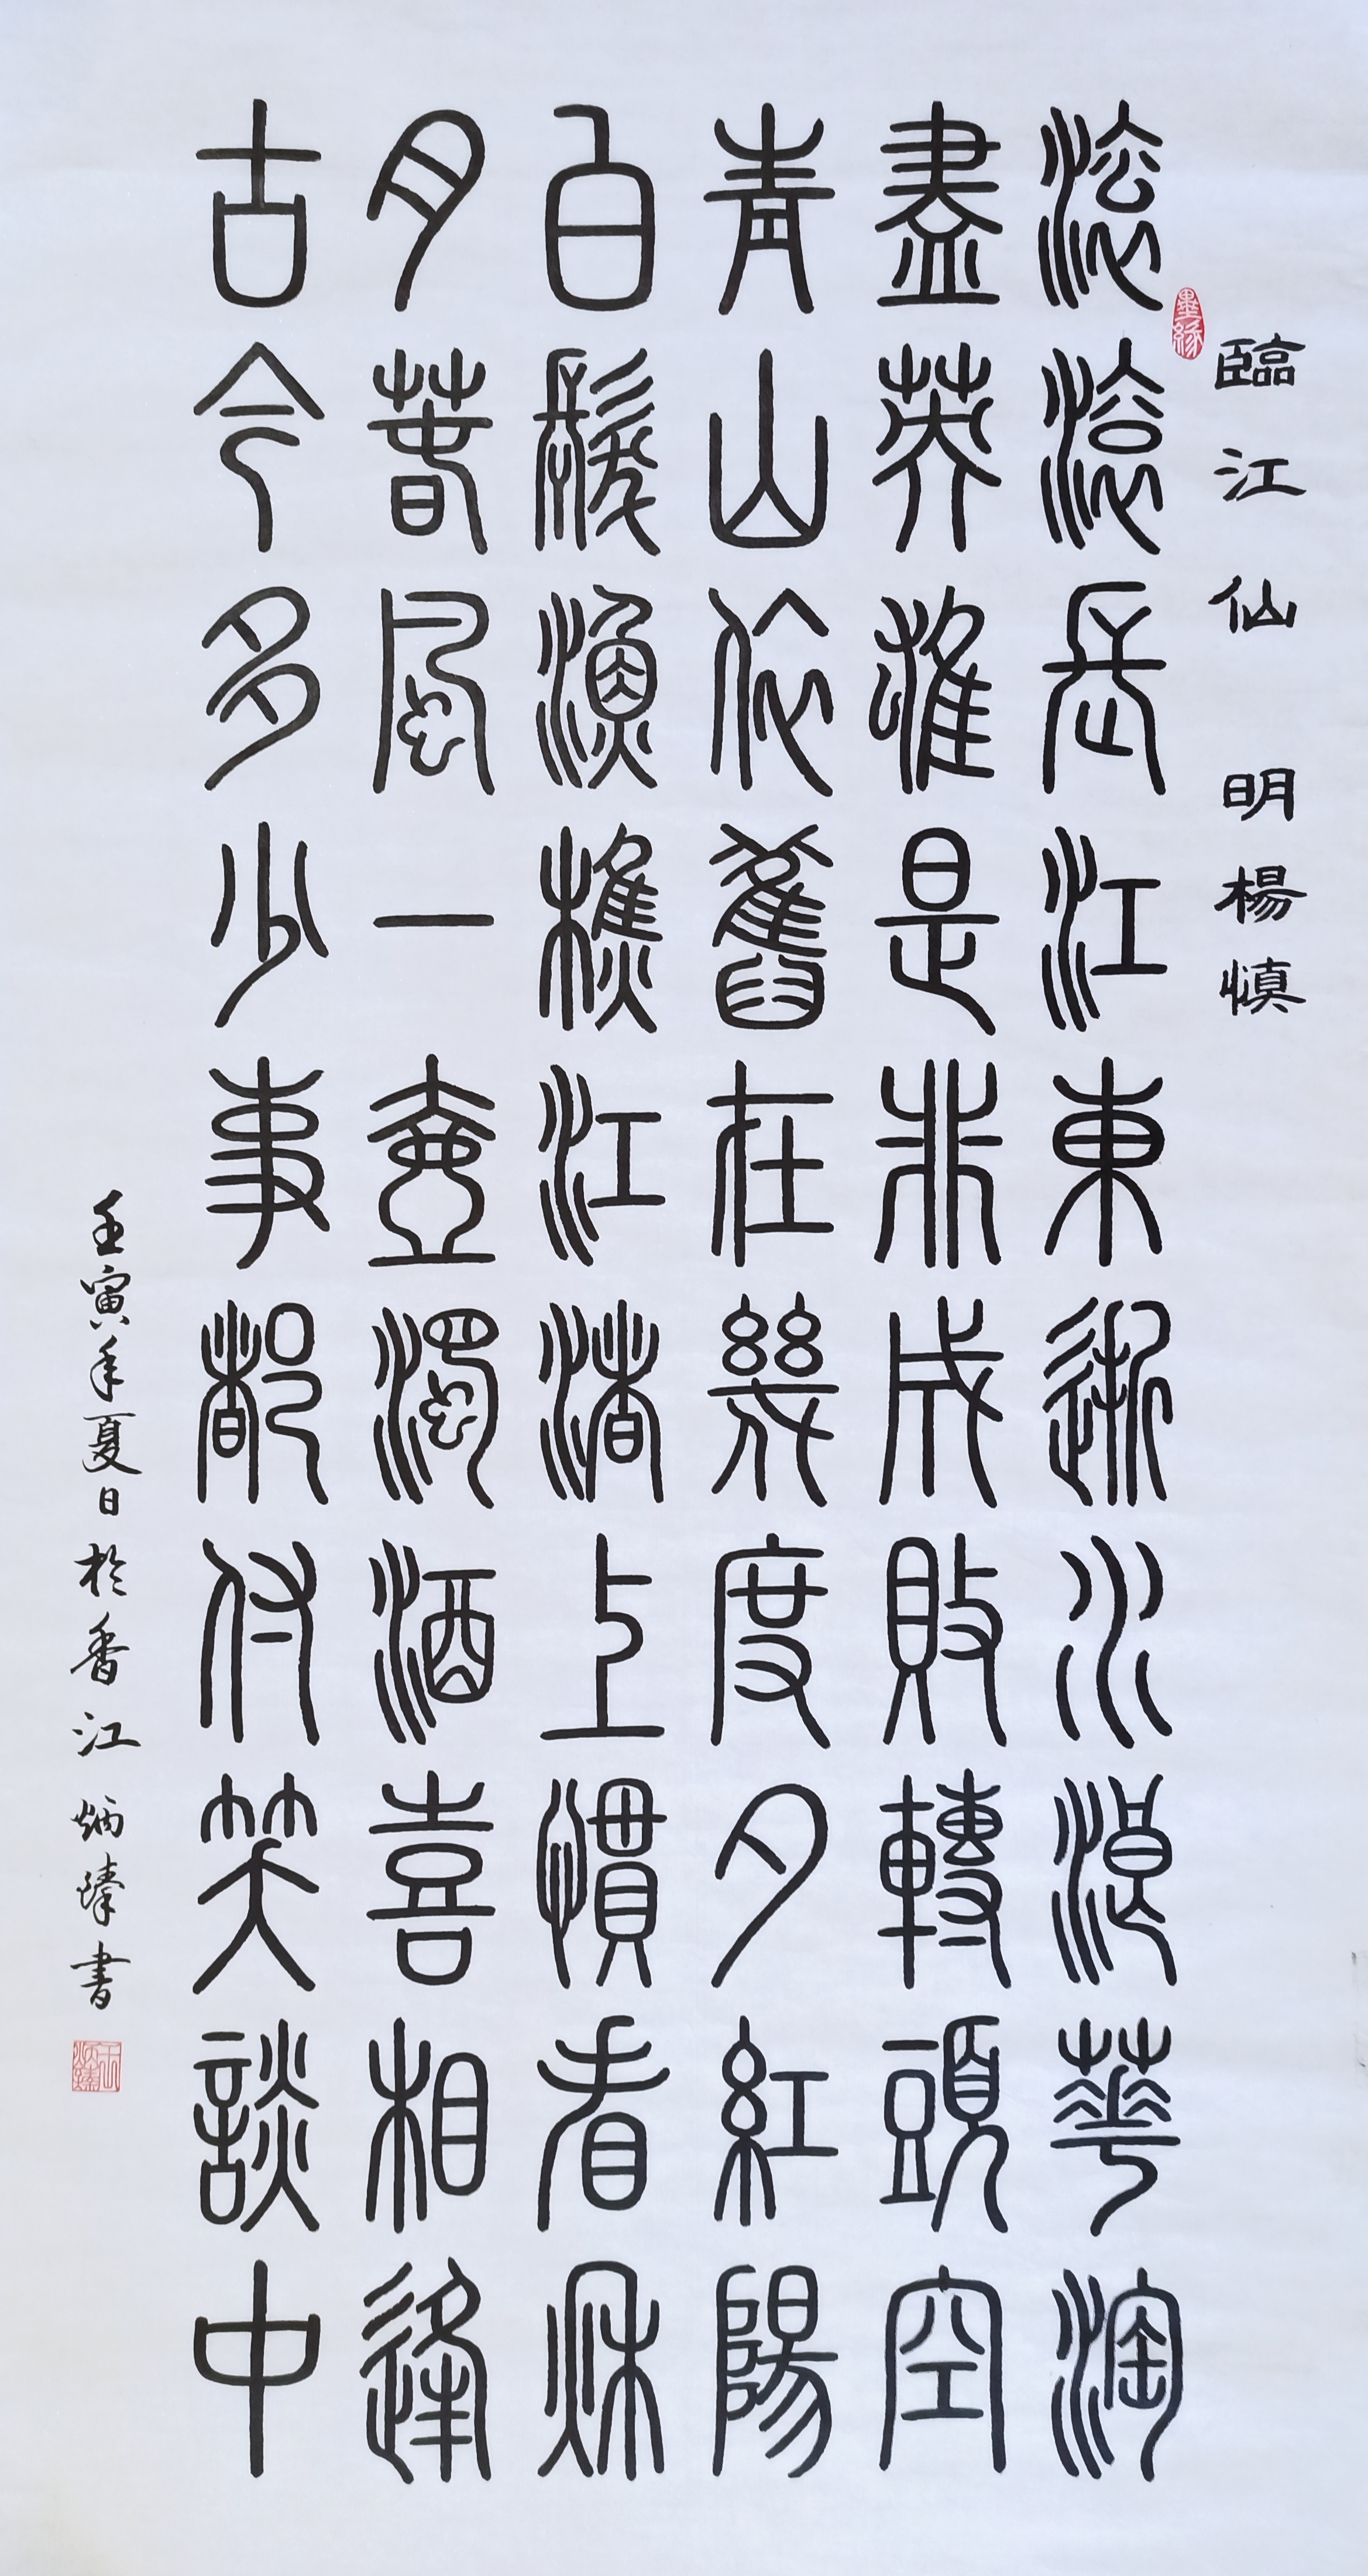 臨江仙 明楊慎
墨緣
滾滾長江東逝水浪華淘
盡英雄是非成敗轉頭空
青山依舊在幾度夕紅陽
白髮漁樵江渚上慣看秋
月春風一壺濁酒喜相逢
古今多少事都付笑談中
壬寅年夏日於香江炳臻書